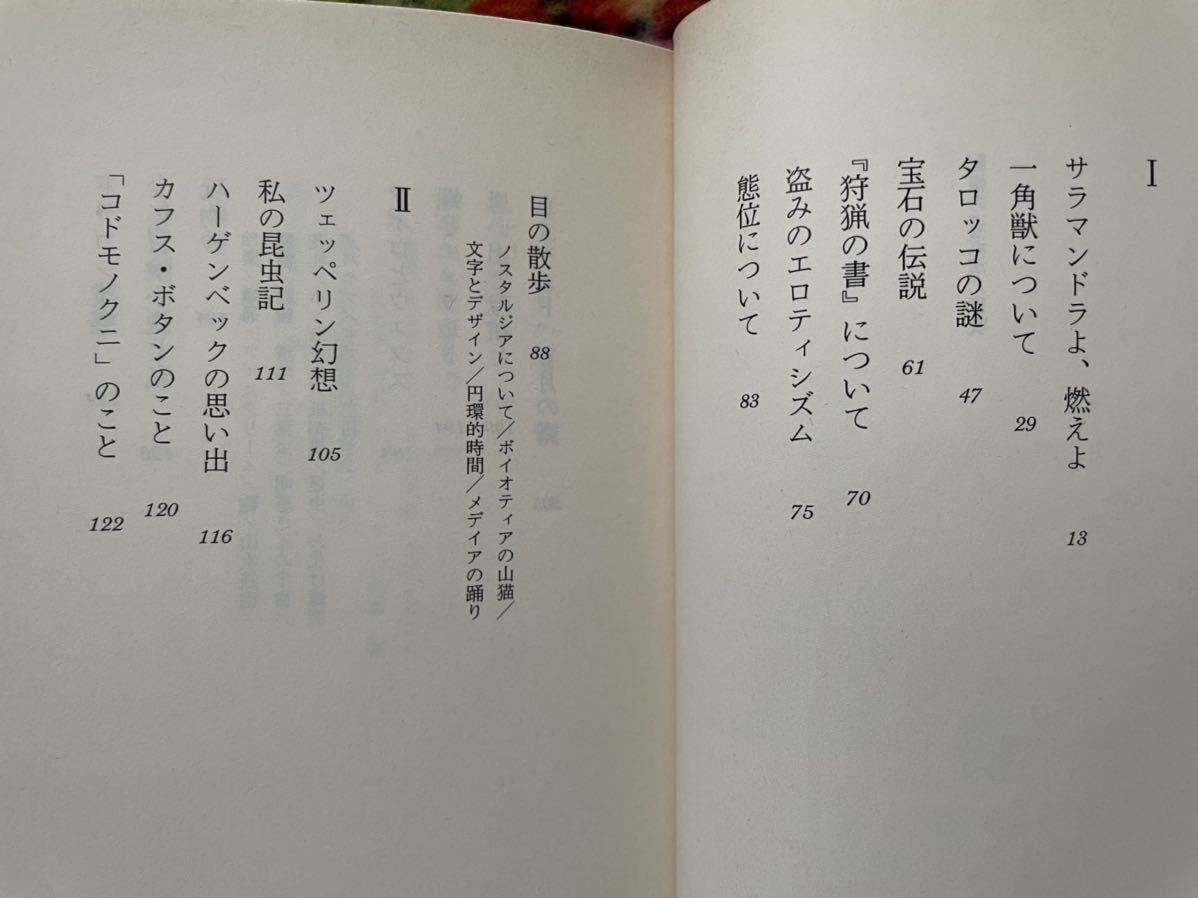 I
サラマンドラよ、燃えよ 13
一角獣について 29
タロッコの謎 47
宝石の伝説 61
『狩猟の書』について 70
盗みのエロティシズム 75
態位について 83
目の散歩 88
ノスタルジアについて/ボイオティアの山猫/
文字とデザイン/円環的時間/メデイアの踊り
II
ツェッペリン幻想 105
私の昆虫記 111
ハーゲンベックの思い出 116
カフス・ボタンのこと 120
「コドモノクニ」のこと 122